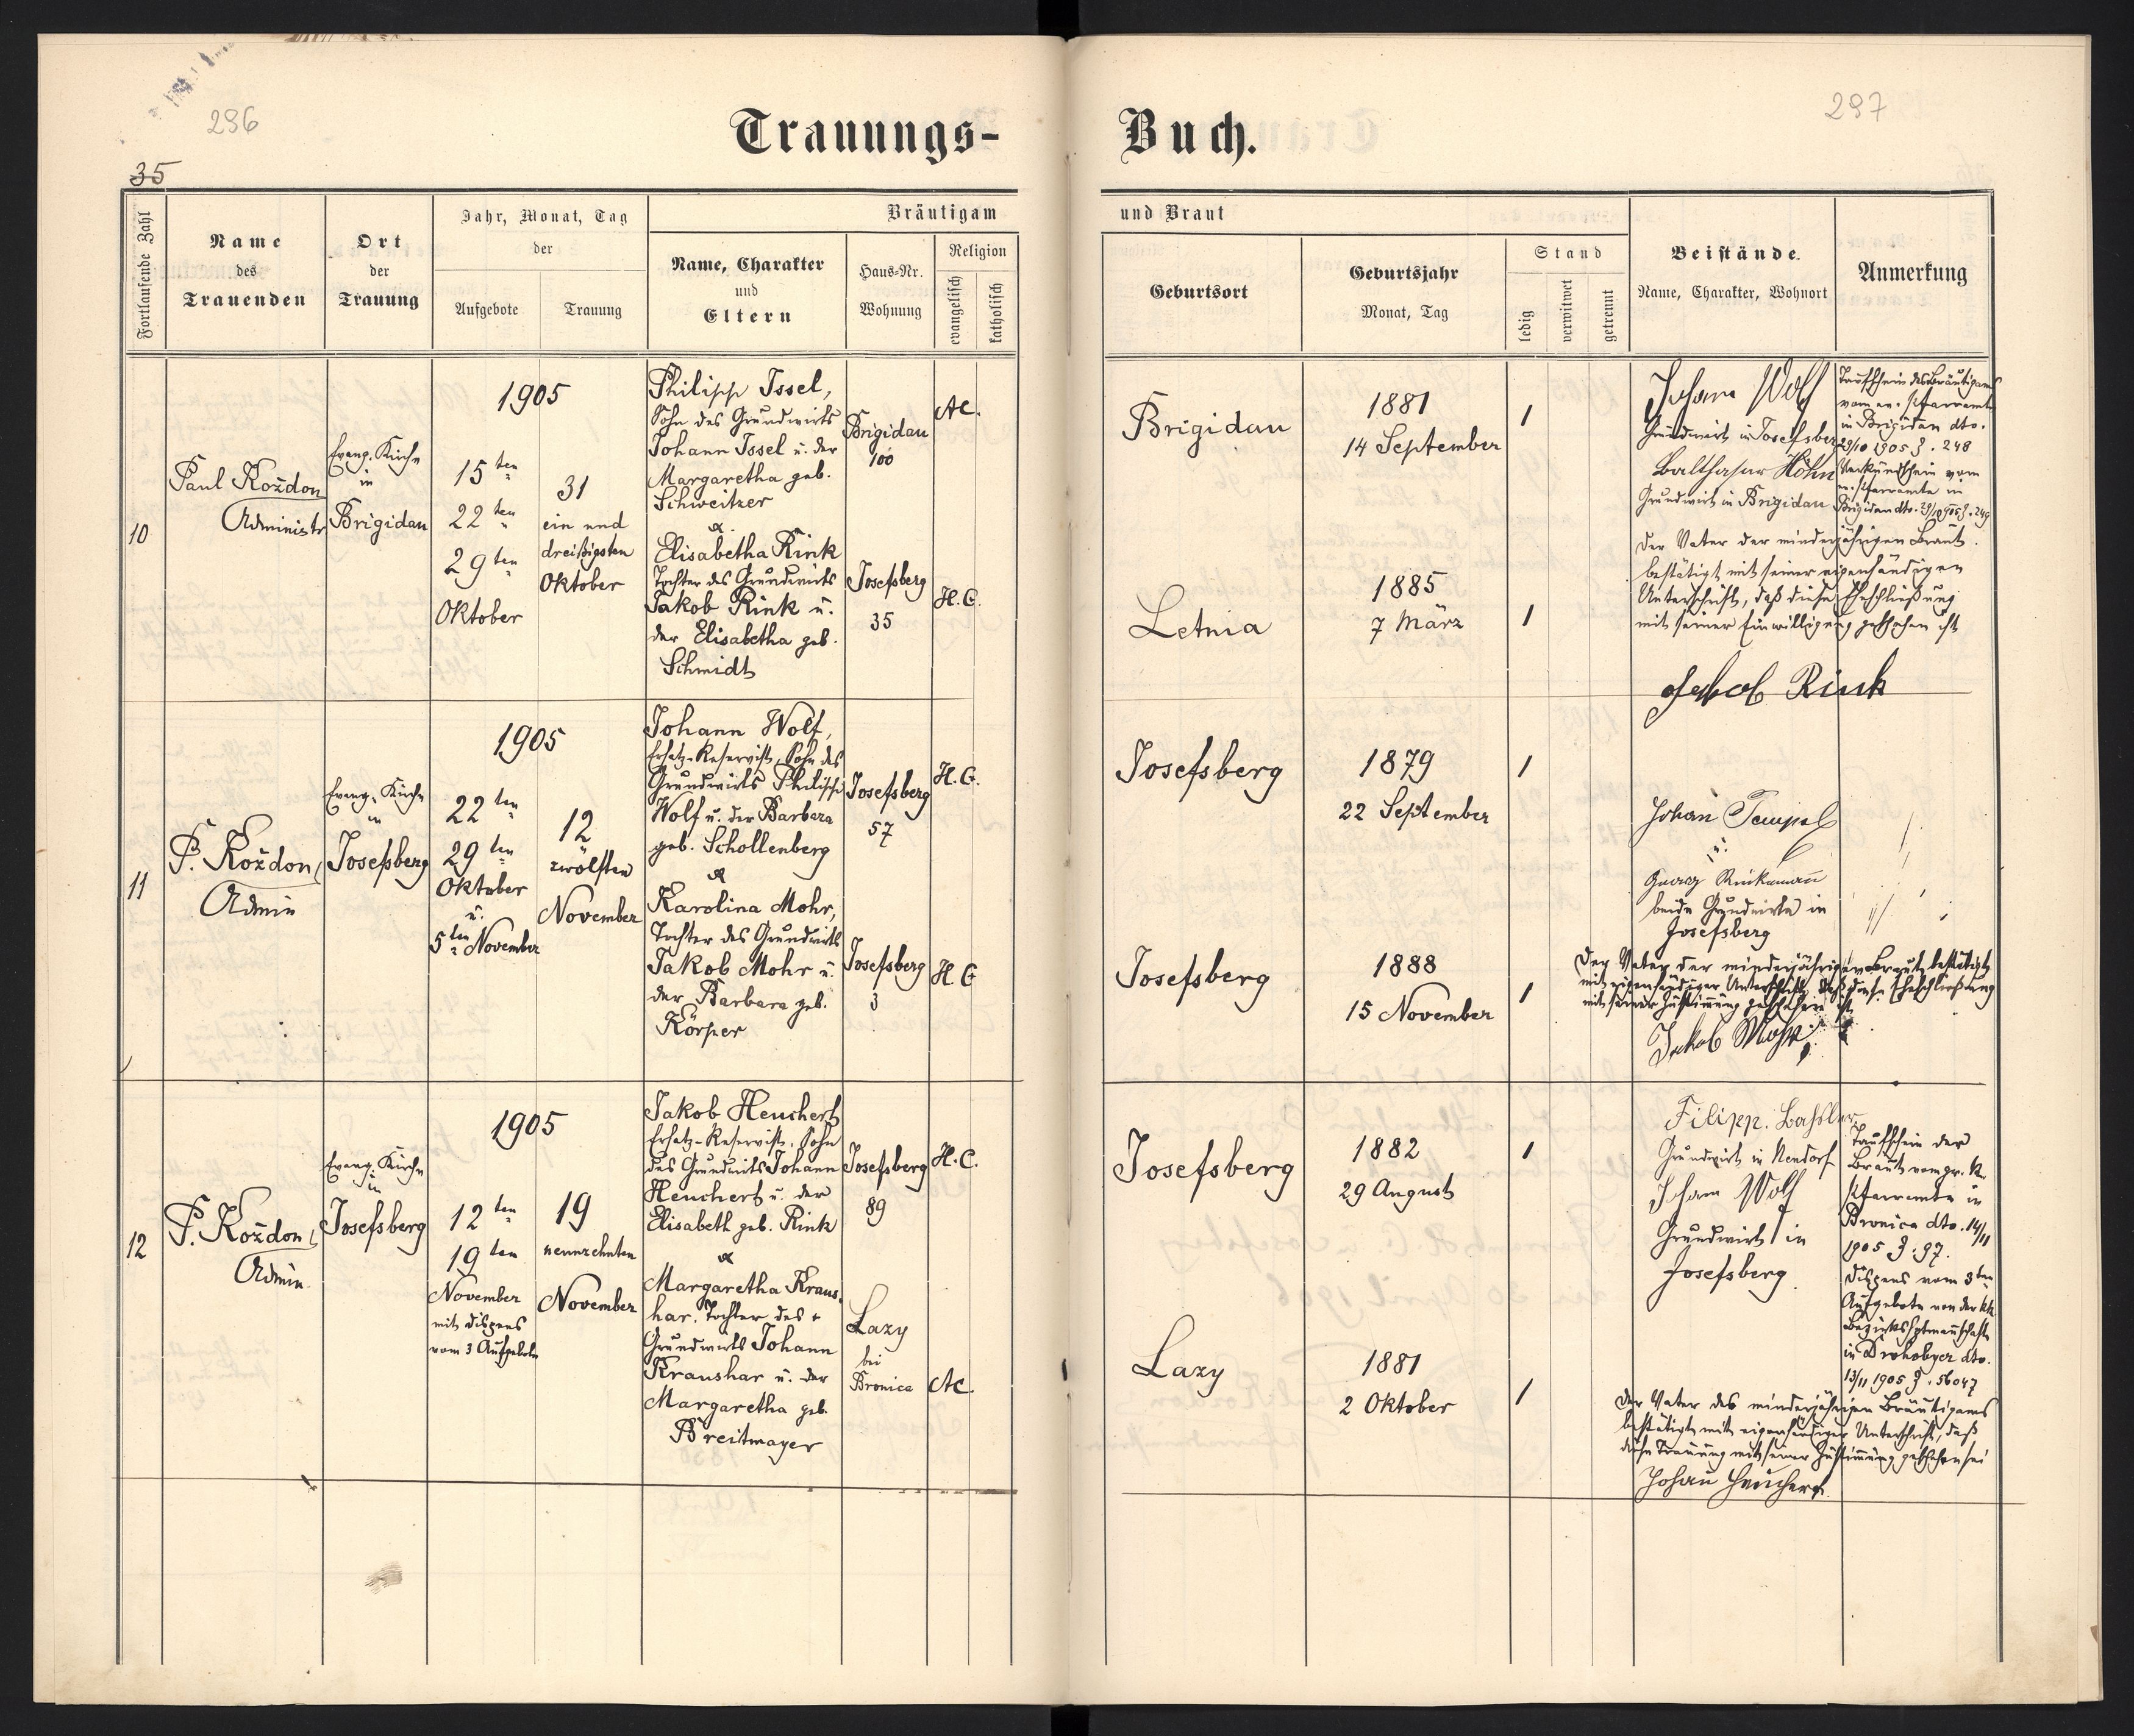 296
297
35
Trauungs-
Buch.
Fortlaufende Zahl
Name
des
Trauenden
Ort
der
Trauung
Jahr, Monat, Tag
der
Aufgebote
Trauung
Bräutigam
Name, Charakter
und
Eltern
Haus-Nr.
Wohnung
Religion
evangelisch
katholisch
und Braut
Geburtsort
Geburtsjahr
Monat, Tag
Stand
ledig
verwitwet
getrennt
Beistände.
Name, Charakter, Wohnort
Anmerkung
10
Paul Koždon
Administr.
Evang. Kirche
in
Brigidau
1905
15ten
22ten
29ten
Oktober
31
ein und
dreißigsten
Oktober
Philipp Issel,
Sohn des Grundwirts
Johann Issel u. der
Margaretha geb.
Schweitzer
&
Elisabetha Rink
Tochter des Grundwirts
Jakob Rink u.
der Elisabetha geb.
Schmidt
Brigidau
100
Josefsberg
35
A.C.
H.C.
Brigidau
1881
14 September
Letnia
1885
7 März
Johann Wolf
Grundwirt in Josefsberg
Balthasar Höhn
Grundwirt in Brigidau
Taufschein des Bräutigams
vom ev. Pfarramte
in Brigidau dto.
29/10 1905 Z. 248
Verkündschein vom
ev. Pfarramte in
Brigidau dto. 29/10 905 Z. 249
Der Vater der minderjährigen Braut
bestätigt mit seiner eigenhändigen
Unterschrift, daß diese Eheschließung
mit seiner Einwilligung geschehen ist
Jakob Rink
11
P. Koždon,
Admin
Evang. Kirche
in
Josefsberg
1905
22ten
29ten
Oktober
u.
5ten November
12
zwölften
November
Johann Wolf,
Ersatz-Reservist, Sohn des
Grundwirts Philipp
Wolf u. der Barbara
geb. Schollenberg
&
Karolina Mohr,
Tochter des Grundwirts
Jakob Mohr u.
der Barbara geb.
Körper
Josefsberg
57
Josefsberg
3
H.C.
H.C
Josefsberg
1879
22 September
Josefsberg
1888
15 November
Johan Tempel
u.
Georg Rinkemann
beide Grundwirte in
Josefsberg
Der Vater der minderjährigen Braut bestätigt
mit eigenhändiger Unterschrift, daß diese Eheschließung
mit seiner Zustimmung geschehen ist
Jakob Mohr
12
P. Koždon,
Admin.
Evang. Kirche
in
Josefsberg
1905
12ten
19ten
November
mit Dispens
vom 3 Aufgebote
19
neunzehnten
November
Jakob Heuchert
Ersatz-Reservist, Sohn
des Grundwirts Johann
Heuchert u. der
Elisabeth geb. Rink
&
Margaretha Kraus-
har, Tochter des +
Grundwirts Johann
Kraushar u. der
Margaretha geb.
Breitmayer
Josefsberg
89
Lazy
bei
Bronica
H.C.
A.C.
Josefsberg
1882
29 August
Lazy
1881
2 Oktober
Filipp. Bassler
Grundwirt in Neudorf
Johann Wolf
Grundwirt in
Josefsberg
Taufschein der
Braut vom gr. k.
Pfarramte in
Bronica dto. 14/11
1905 Z. 97.
Dispens vom 3ten
Aufgebote von der kk
Bezirkshptmannschaft
in Drohobycz dto.
13/11 1905 Z. 56047
Der Vater des minderjährigen Bräutigams
bestätigt mit eigenhändiger Unterschrift, daß
diese Trauung mit seiner Zustimmung geschehen sei
Johann Heuchert